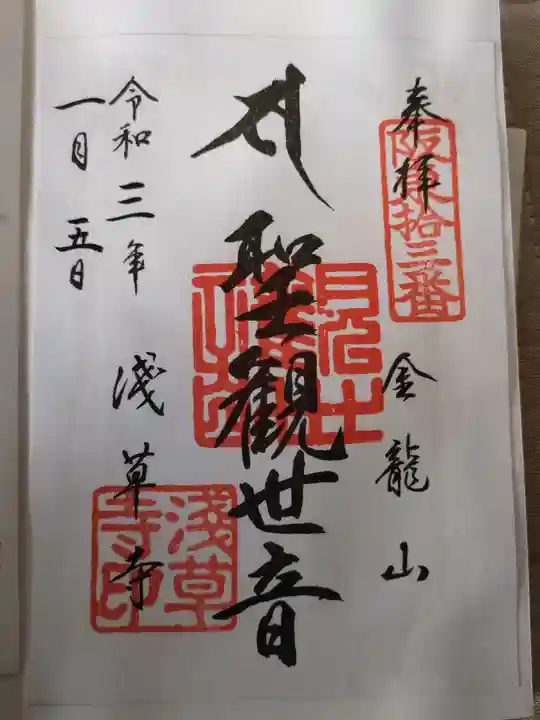 奉拝
阪東拾三番
金龍山
聖観世音
浅草寺
令和三年
一月五日
淺草寺印